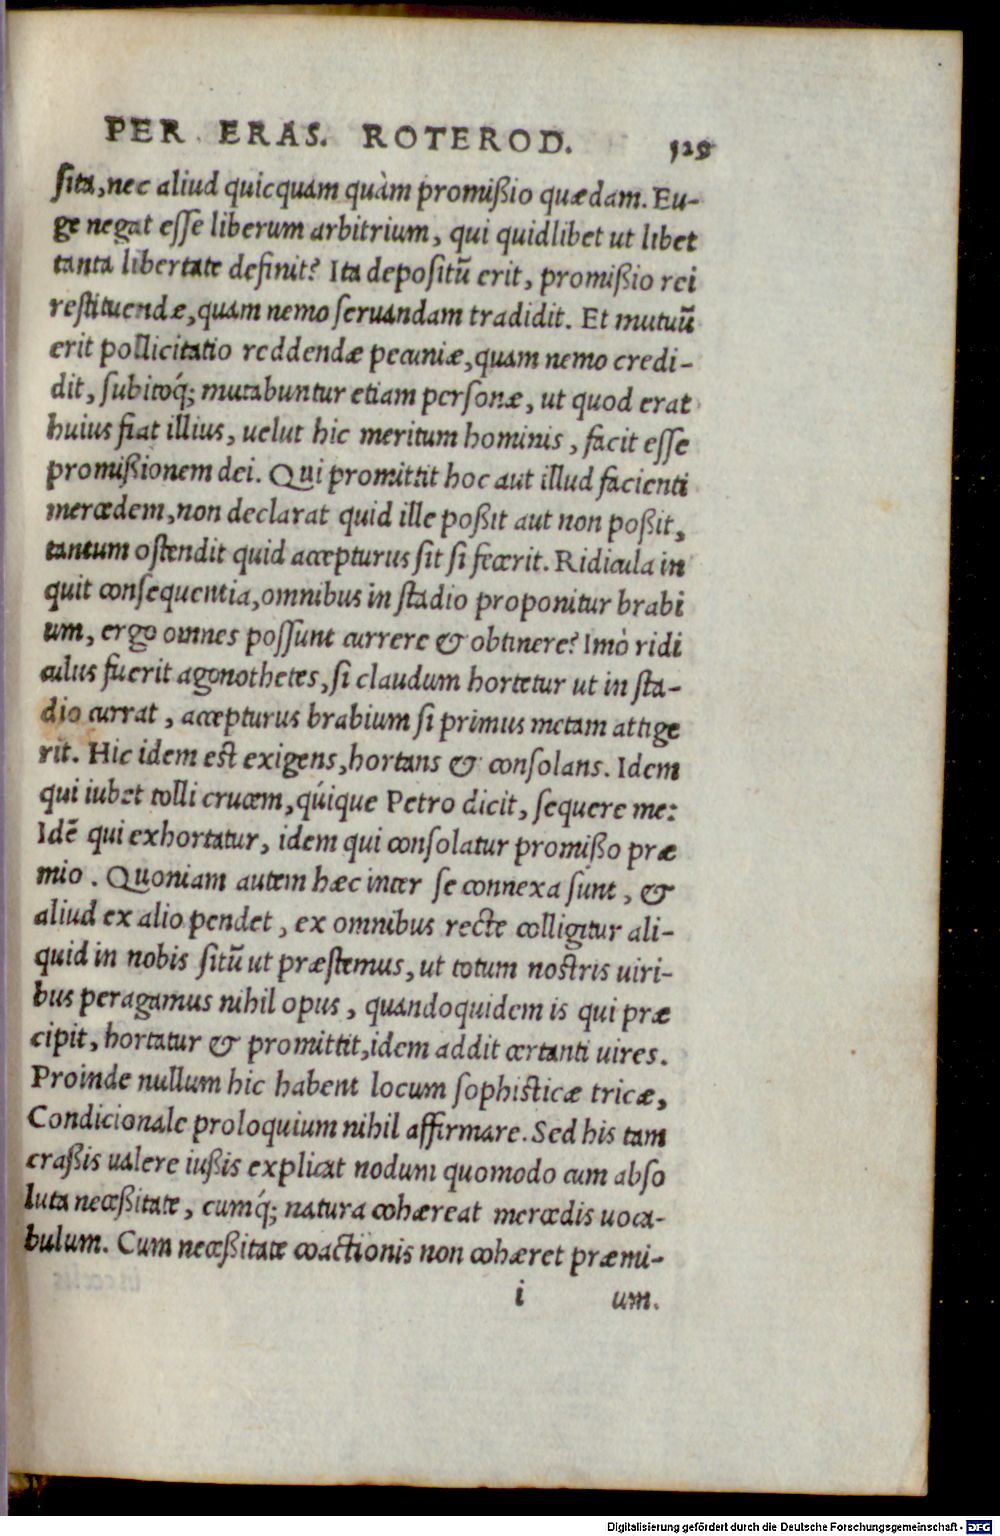 PER ERAS. ROTEROD. 129
sita, nec aliud quicquam quàm promißio quædam. Eu-
ge negat esse liberum arbitrium, qui quidlibet ut libet
tanta libertate definit? Ita depositũ erit, promißio rei
restituendæ, quam nemo seruandam tradidit. Et mutuũ
erit pollicitatio reddendæ pecuniæ, quam nemo credi-
dit, subitoq́; mutabuntur etiam personæ, ut quod erat
huius fiat illius, uelut hic meritum hominis, facit esse
promißionem dei. Qui promittit hoc aut illud facienti
mercedem, non declarat quid ille poßit aut non poßit,
tantum ostendit quid accepturus sit si fecerit. Ridicula in
quit consequentia, omnibus in stadio proponitur brabi
um, ergo omnes possunt currere & obtinere? Imò ridi
culus fuerit agonothetes, si claudum hortetur ut in sta-
dio currat, accepturus brabium si primus metam attige
rit. Hic idem est exigens, hortans & consolans. Idem
qui iubet tolli crucem, q́uique Petro dicit, sequere me:
Idẽ qui exhortatur, idem qui consolatur promißo præ
mio. Quoniam autem hæc inter se connexa sunt, &
aliud ex alio pendet, ex omnibus recte colligitur ali-
quid in nobis sitũ ut præstemus, ut totum nostris uiri-
bus peragamus nihil opus, quandoquidem is qui præ
cipit, hortatur & promittit, idem addit certanti uires.
Proinde nullum hic habent locum sophisticæ tricæ,
Condicionale proloquium nihil affirmare. Sed his tam
craßis ualere iußis explicat nodum quomodo cum abso
luta neceßitate, cumq́; natura cohæreat mercedis uoca-
bulum. Cum neceßitate coactionis non cohæret præmi-
i um.
Digitalisierung gefördert durch die Deutsche Forschungsgemeinschaft - DFG